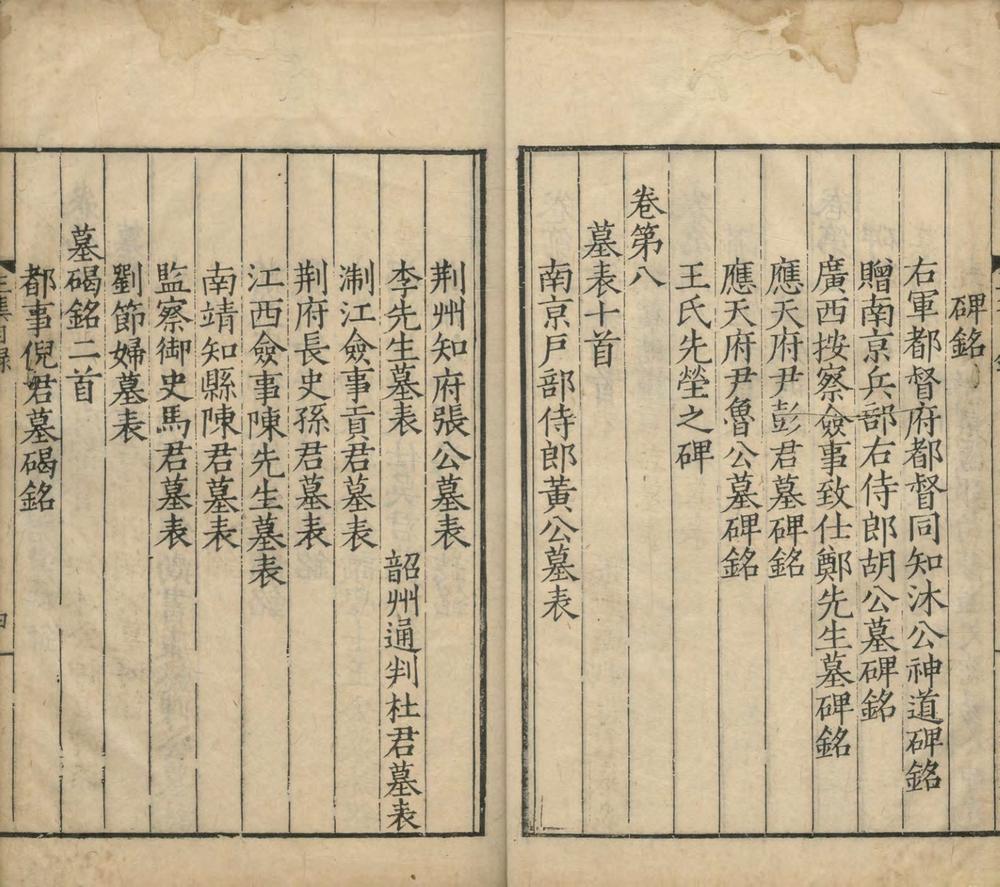 碑銘
右軍都督府都督同知沐公神道碑銘
贈南京兵部右侍郎胡公墓碑銘
廣西按察僉事致仕鄭先生墓碑銘
應天府尹彭君墓碑銘
應天府尹魯公墓碑銘
王氏先塋之碑
卷第八
墓表十首
南京戸部侍郎黃公墓表
荆州知府張公墓表
李先生墓表 韶州通判杜君墓表
淛江僉事貢君墓表
荆府長史孫君墓表
江西僉事陳先生墓表
南靖知縣陳君墓表
監察御史馬君墓表
劉節婦墓表
墓碣銘二首
都事倪君墓碣銘